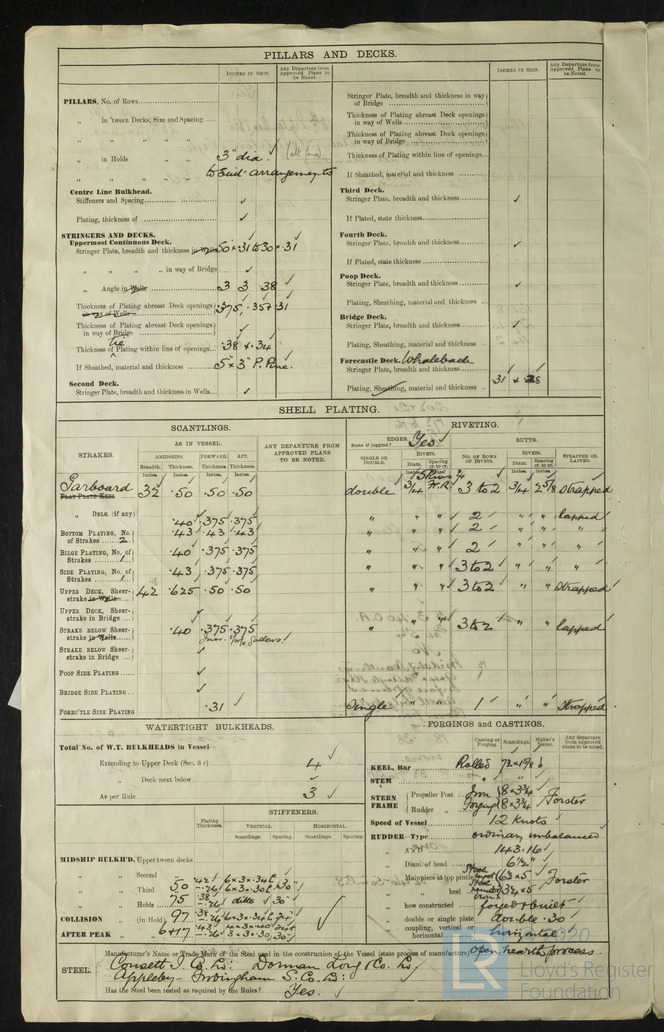 PILLARS AND DECKS.
INCHES IN SHIP.
Any Departure from Approved Plans to be Noted.
PILLARS, No. of Rows
„ in 'tween Decks, Size and Spacing
„ „ „ „
„ in Holds „ „ 3" dia.
„ „ „ „ to suit arrangements
Centre Line Bulkhead.
Stiffeners and Spacing ✓
Plating, thickness of ✓
STRINGERS AND DECKS.
Uppermost Continuous Deck.
Stringer Plate, breadth and thickness in Wells 50 × .31 to 30 × .31
„ „ „ „ in way of Bridge ✓
„ Angle in Wells 3 3 .38 ✓
Thickness of Plating abreast Deck openings in way of Wells .375, .35 & .31
Thickness of Plating abreast Deck openings in way of Bridge ✓
Thickness of Tie Plating within line of openings .38 & .34
If Sheathed, material and thickness 5" × 3" P. Pine.
Second Deck.
Stringer Plate, breadth and thickness in Wells ✓
INCHES IN SHIP.
Any Departure from Approved Plans to be Noted.
Stringer Plate, breadth and thickness in way of Bridge
Thickness of Plating abreast Deck openings in way of Wells
Thickness of Plating abreast Deck openings in way of Bridge
Thickness of Plating within line of openings
If Sheathed, material and thickness
Third Deck.
Stringer Plate, breadth and thickness ✓
If Plated, state thickness
Fourth Deck.
Stringer Plate, breadth and thickness ✓
If Plated, state thickness
Poop Deck.
Stringer Plate, breadth and thickness ✓
Plating, Sheathing, material and thickness
Bridge Deck.
Stringer Plate, breadth and thickness ✓
Plating, Sheathing, material and thickness
Forecastle Deck. Whaleback
Stringer Plate, breadth and thickness
31 × .28
Plating, Sheathing, material and thickness
SHELL PLATING.
SCANTLINGS.
RIVETING.
STRAKES.
AS IN VESSEL.
ANY DEPARTURE FROM APPROVED PLANS TO BE NOTED.
AMIDSHIPS. FORWARD. AFT.
Breadth. Thickness. Thickness. Thickness.
Inches. Inches. Inches. Inches.
EDGES. Yes.
State if joggled?
SINGLE OR DOUBLE.
RIVETS.
Diam. Spacing cr. to cr.
BUTTS.
NO. OF ROWS OF RIVETS.
RIVETS.
Diam. Spacing cr. to cr.
STRAPPED OR LAPPED.
Garboard
FLAT PLATE KEEL 32 .50 .50 .50 double 3/4 3 to 2 3/4 2 5/8 Strapped
„ DBLG. (if any) .40 .375 .375 „ „ „ 2 „ „ lapped
BOTTOM PLATING, No. of Strakes 2 .43 .43 .43 „ „ „ 2 „ „ „
BILGE PLATING, No. of Strakes 1 .40 .375 .375 „ „ „ 2 „ „ „
SIDE PLATING, No. of Strakes 1 .43 .375 .375 „ „ „ 3 to 2 „ „ „
UPPER DECK, Sheerstrake in Wells 42 .625 .50 .50 „ „ „ 3 to 2 „ „ Strapped
UPPER DECK, Sheerstrake in Bridge ✓
STRAKE BELOW Sheerstrake in Wells .40 .375 .375 „ „ „ 3 to 2 „ „ lapped
STRAKE BELOW Sheerstrake in Bridge ✓
POOP SIDE PLATING ✓
BRIDGE SIDE PLATING ✓
FORE'C'TLE SIDE PLATING .31 ✓ Single „ „ 1 „ „ Strapped
WATERTIGHT BULKHEADS.
Total No. of W.T. BULKHEADS in Vessel—
Extending to Upper Deck 4
„ Deck next below ✓
As per Rule 3 ✓
Plating Thickness.
STIFFENERS.
VERTICAL. HORIZONTAL.
Scantlings. Spacing. Scantlings. Spacing.
MIDSHIP BULKH'D, Upper tween decks
„ Second
„ Third 50
„ Holds 75 ditto 30"
COLLISION „ (in Hold) 97
AFTER PEAK „ „ 6 & 17
FORGINGS and CASTINGS.
Casting or Forging. Scantlings. Maker's Name. Any departure from approved plans to be noted.
KEEL, Bar Rolled
STEM „ „
STERN FRAME Propeller Post Iron 8 × 3 3/4 Forster
Rudder „ Forging 8 × 3 3/4
Speed of Vessel 12 Knots
RUDDER—Type ordinary unbalanced
„ A × D 143.16
„ Diam. of head 6 1/2"
„ Mainpiece at top pintle 6 1/2 × 5 Forster
„ „ heel
„ how constructed forged & built
„ double or single plate double .30
„ coupling, vertical or horizontal horizontal
STEEL.
Manufacturer's Name or Trade Mark of the Steel used in the construction of the Vessel (state process of manufacture) open hearth process.
Consett I. Co. Ld: Dorman Long & Co. Ld
Appleby-Frodingham S. Co. Ld:
Has the Steel been tested as required by the Rules? Yes.
LR
2020
Lloyd's Register
Foundation